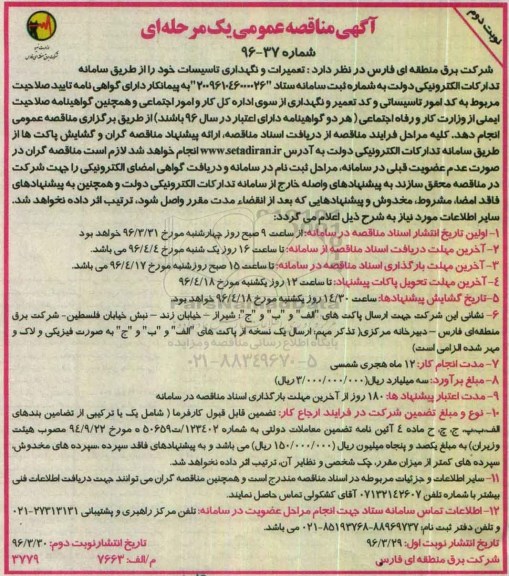 نوبت دوم
آگهی مناقصه عمومی یک مرحله‌ای
شماره ۳۷-۹۶
شرکت برق منطقه ای فارس در نظر دارد: تعمیرات و نگهداری تاسیسات خود را از طریق سامانه
تدارکات الکترونیکی دولت به شماره ثبت سامانه ستاد "۲۰۰۹۶۱۰۴۶۰۰۰۰۲۶" به پیمانکار دارای گواهی نامه تایید صلاحیت
مربوط به کد امور تاسیساتی و کد تعمیر و نگهداری از سوی اداره کل کار و امور اجتماعی و همچنین گواهینامه صلاحیت
ایمنی از وزارت کار و رفاه اجتماعی ( هر دو گواهینامه دارای اعتبار در سال ۹۶ باشند) از طریق برگزاری مناقصه عمومی
انجام دهد. کلیه مراحل فرایند مناقصه از دریافت اسناد مناقصه، ارائه پیشنهاد مناقصه گران و گشایش پاکت ها از
طریق سامانه تدارکات الکترونیکی دولت به آدرس www.setadiran.ir انجام خواهد شد. لازم است مناقصه گران در
صورت عدم عضویت قبلی در سامانه، مراحل ثبت نام در سامانه و دریافت گواهی امضای الکترونیکی را جهت شرکت
در مناقصه محقق سازند. به پیشنهادهای واصله خارج از سامانه تدارکات الکترونیکی دولت و همچنین به پیشنهادهای
فاقد امضا، مشروط، مخدوش و پیشنهادهایی که بعد از انقضاء مدت مقرر واصل شود، ترتیب اثر داده نخواهد شد.
سایر اطلاعات مورد نیاز به شرح ذیل اعلام می گردد:
۱- اولین تاریخ انتشار اسناد مناقصه در سامانه: از ساعت ۹ صبح روز چهارشنبه مورخ ۹۶/۳/۳۱ خواهد بود
۲- آخرین مهلت دریافت اسناد مناقصه از سامانه: تا ساعت ۱۶ روز یک شنبه مورخ ۹۶/۴/۴ می باشد.
۳- آخرین مهلت بارگذاری اسناد مناقصه در سامانه: تا ساعت ۱۵ صبح روز شنبه مورخ ۹۶/۴/۱۷ می باشد.
۴- آخرین مهلت تحویل پاکات پیشنهاد: تا ساعت ۱۲ روز یکشنبه مورخ ۹۶/۴/۱۸
۵- تاریخ گشایش پیشنهادها: ساعت ۱۴/۳۰ روز یکشنبه مورخ ۹۶/۴/۱۸ خواهد بود.
۶- نشانی این شرکت جهت ارسال پاکت های "الف" و "ب" و "ج": شیراز – خیابان زند – نبش خیابان فلسطین- شرکت برق
منطقه‌ای فارس – دبیرخانه مرکزی( تذکر مهم: ارسال یک نسخه از پاکت های "الف" و "ب" و "ج" به صورت فیزیکی و لاک و
مهر شده الزامی است)
۷- مدت انجام کار: ۱۲ ماه هجری شمسی
۸- مبلغ برآورد: سه میلیارد ریال(۳/۰۰۰/۰۰۰/۰۰۰ ریال)
۹- مدت اعتبار پیشنهاد ها: ۱۸۰ روز از آخرین مهلت بارگذاری اسناد مناقصه در سامانه
۱۰- نوع و مبلغ تضمین شرکت در فرایند ارجاع کار: تضمین قابل قبول کارفرما ( شامل یک یا ترکیبی از تضامین بندهای
الف،ب،پ، ج،چ، ح ماده ۴ آئین نامه تضمین معاملات دولتی به شماره ۱۲۳۴۰۲/ت۵۰۶۵۹ ه مورخ ۹۴/۹/۲۲ مصوب هیئت
وزیران) به مبلغ یکصد و پنجاه میلیون ریال (۱۵۰/۰۰۰/۰۰۰ ریال) می باشد و به پیشنهادهای فاقد سپرده ،سپرده های مخدوش،
سپرده های کمتر از میزان مقرر، چک شخصی و نظایر آن، ترتیب اثر داده نخواهد شد.
۱۱- سایر اطلاعات و جزئیات مربوطه در اسناد مناقصه مندرج است و همچنین مناقصه گران می توانند جهت دریافت اطلاعات فنی
بیشتر با شماره تلفن ۰۷۱۳۲۱۴۳۶۰۷ آقای کشکولی تماس حاصل نمایند.
۱۲- اطلاعات تماس سامانه ستاد جهت انجام مراحل عضویت در سامانه: تلفن مرکز راهبری و پشتیبانی ۲۷۳۱۳۱۳۱-۰۲۱
و تلفن دفتر ثبت نام: ۸۸۹۶۹۷۳۷-۸۵۱۹۳۷۶۸-۰۲۱ می باشد.
تاریخ انتشار نوبت اول: ۹۶/۳/۲۹ تاریخ انتشار نوبت دوم: ۹۶/۳/۳۰
شرکت برق منطقه ای فارس م/الف: ۷۶۶۳ ۳۷۷۹
پایگاه اطلاع رسانی مناقصه و مزایده
۰۲۱-۸۸۳۴۹۶۷۰-۵